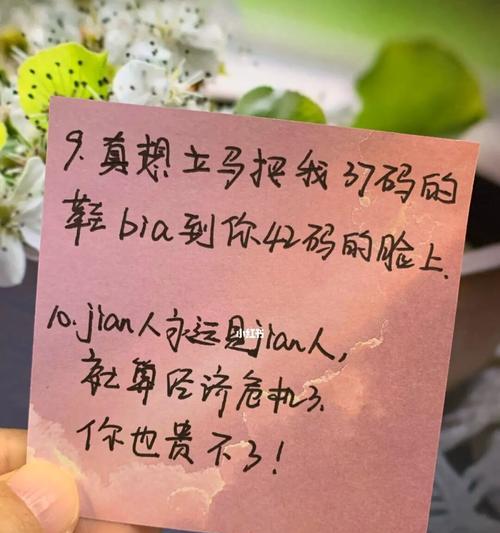 9.真想立马把我37码的
鞋bia到你42码的脸上.
10.jian人永远是jian人,
就算经济危机了.
你也贵不了!
小红书